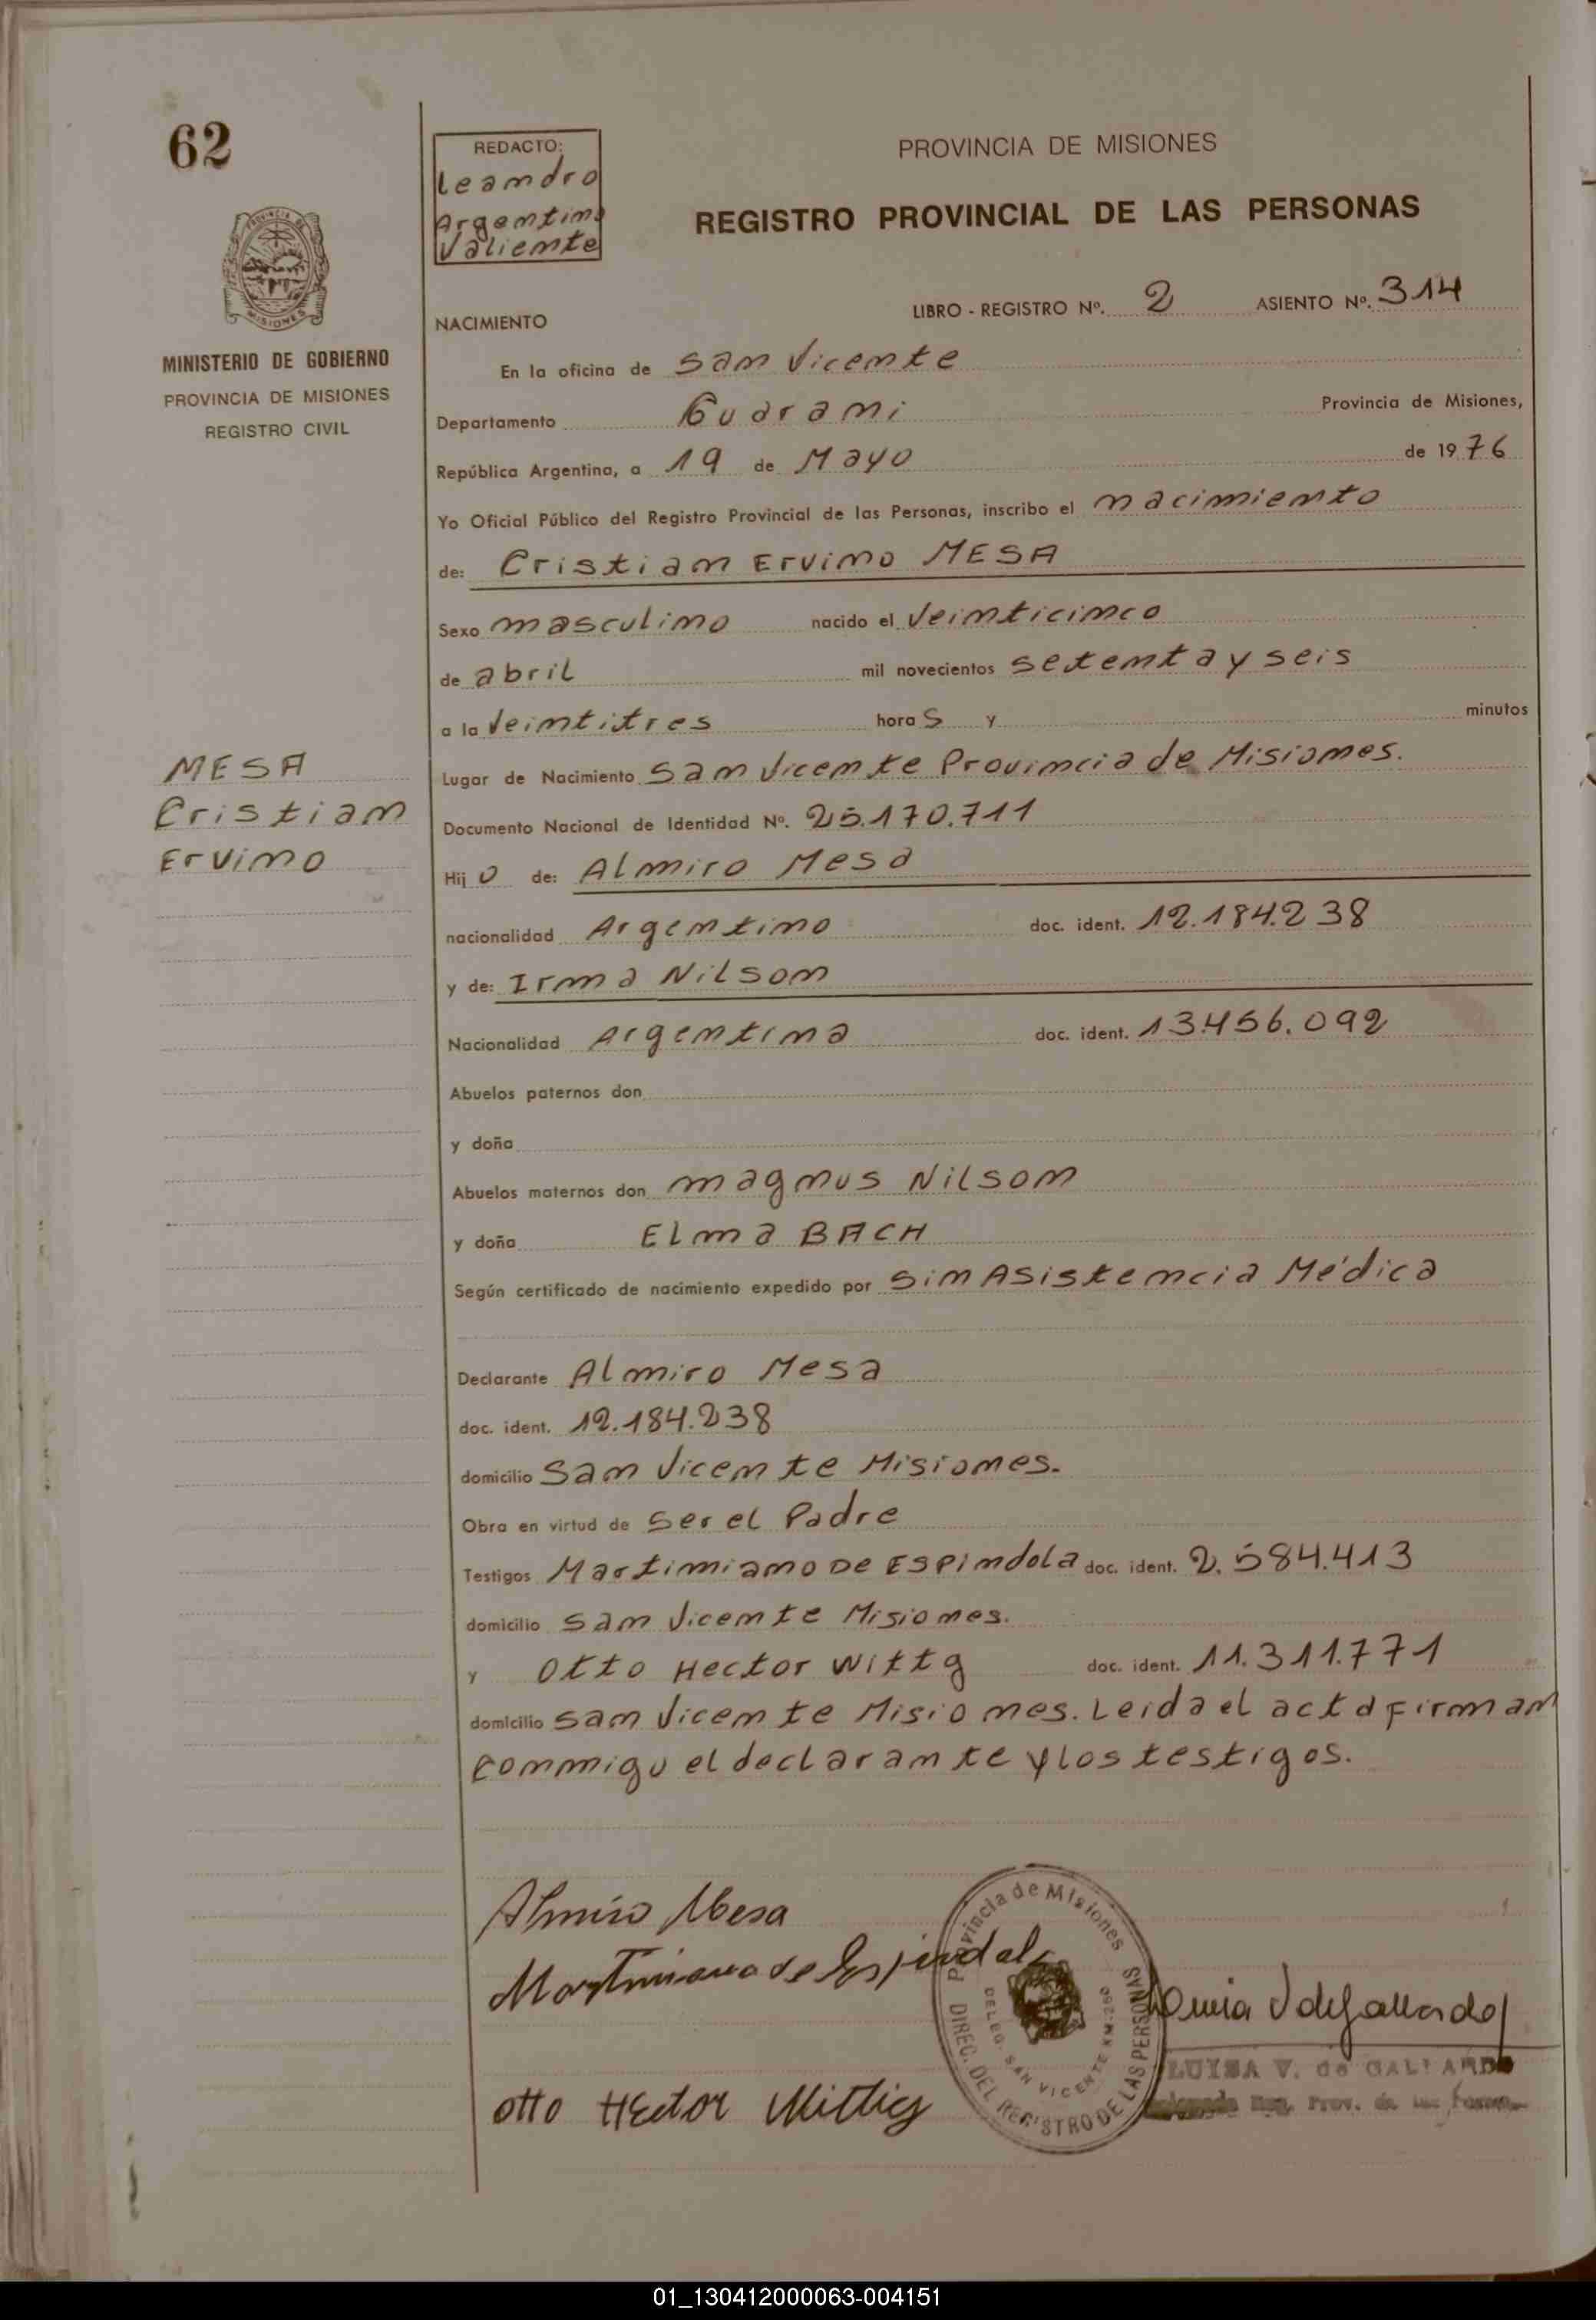 62
REDACTO:
Leandro
Argentino
Valiente
PROVINCIA DE MISIONES
REGISTRO PROVINCIAL DE LAS PERSONAS
PROVINCIA DE
MISIONES
MINISTERIO DE GOBIERNO
PROVINCIA DE MISIONES
REGISTRO CIVIL
LIBRO - REGISTRO Nº. 2 ASIENTO Nº. 314
NACIMIENTO
En la oficina de San Vicente
Departamento Guarani Provincia de Misiones,
República Argentina, a 19 de Mayo de 1976
Yo Oficial Público del Registro Provincial de las Personas, inscribo el nacimiento
de: Cristian Ervino MESA
Sexo masculino nacido el Veinticinco
de abril mil novecientos setenta y seis
a la Veintitres horas y minutos
MESA
Cristian
Ervino
Lugar de Nacimiento San Vicente Provincia de Misiones.
Documento Nacional de Identidad Nº. 25.170.711
Hijo de: Almiro Mesa
nacionalidad Argentino doc. ident. 12.184.238
y de: Irma Nilson
Nacionalidad Argentina doc. ident. 13.456.092
Abuelos paternos don
y doña
Abuelos maternos don magnus Nilson
y doña Elma BACH
Según certificado de nacimiento expedido por Sin Asistencia Médica
Declarante Almiro Mesa
doc. ident. 12.184.238
domicilio San Vicente Misiones.
Obra en virtud de Ser el Padre
Testigos Martiniano De Espindola doc. ident. 2.584.413
domicilio San Vicente Misiones.
y Otto Hector Wittg doc. ident. 11.311.771
domicilio San Vicente Misiones. Leida el acta firman
conmigo el declarante y los testigos.
Almiro Mesa
Martiniano de Espindola
Otto Hector Wittig
Provincia de Misiones
DIREC. DEL REGISTRO DE LAS PERSONAS
DELEG. SAN VICENTE KM-260
V de Gallardo
LUISA V. de GALLARDO
Reg. Prov. de las Person
01_130412000063-004151